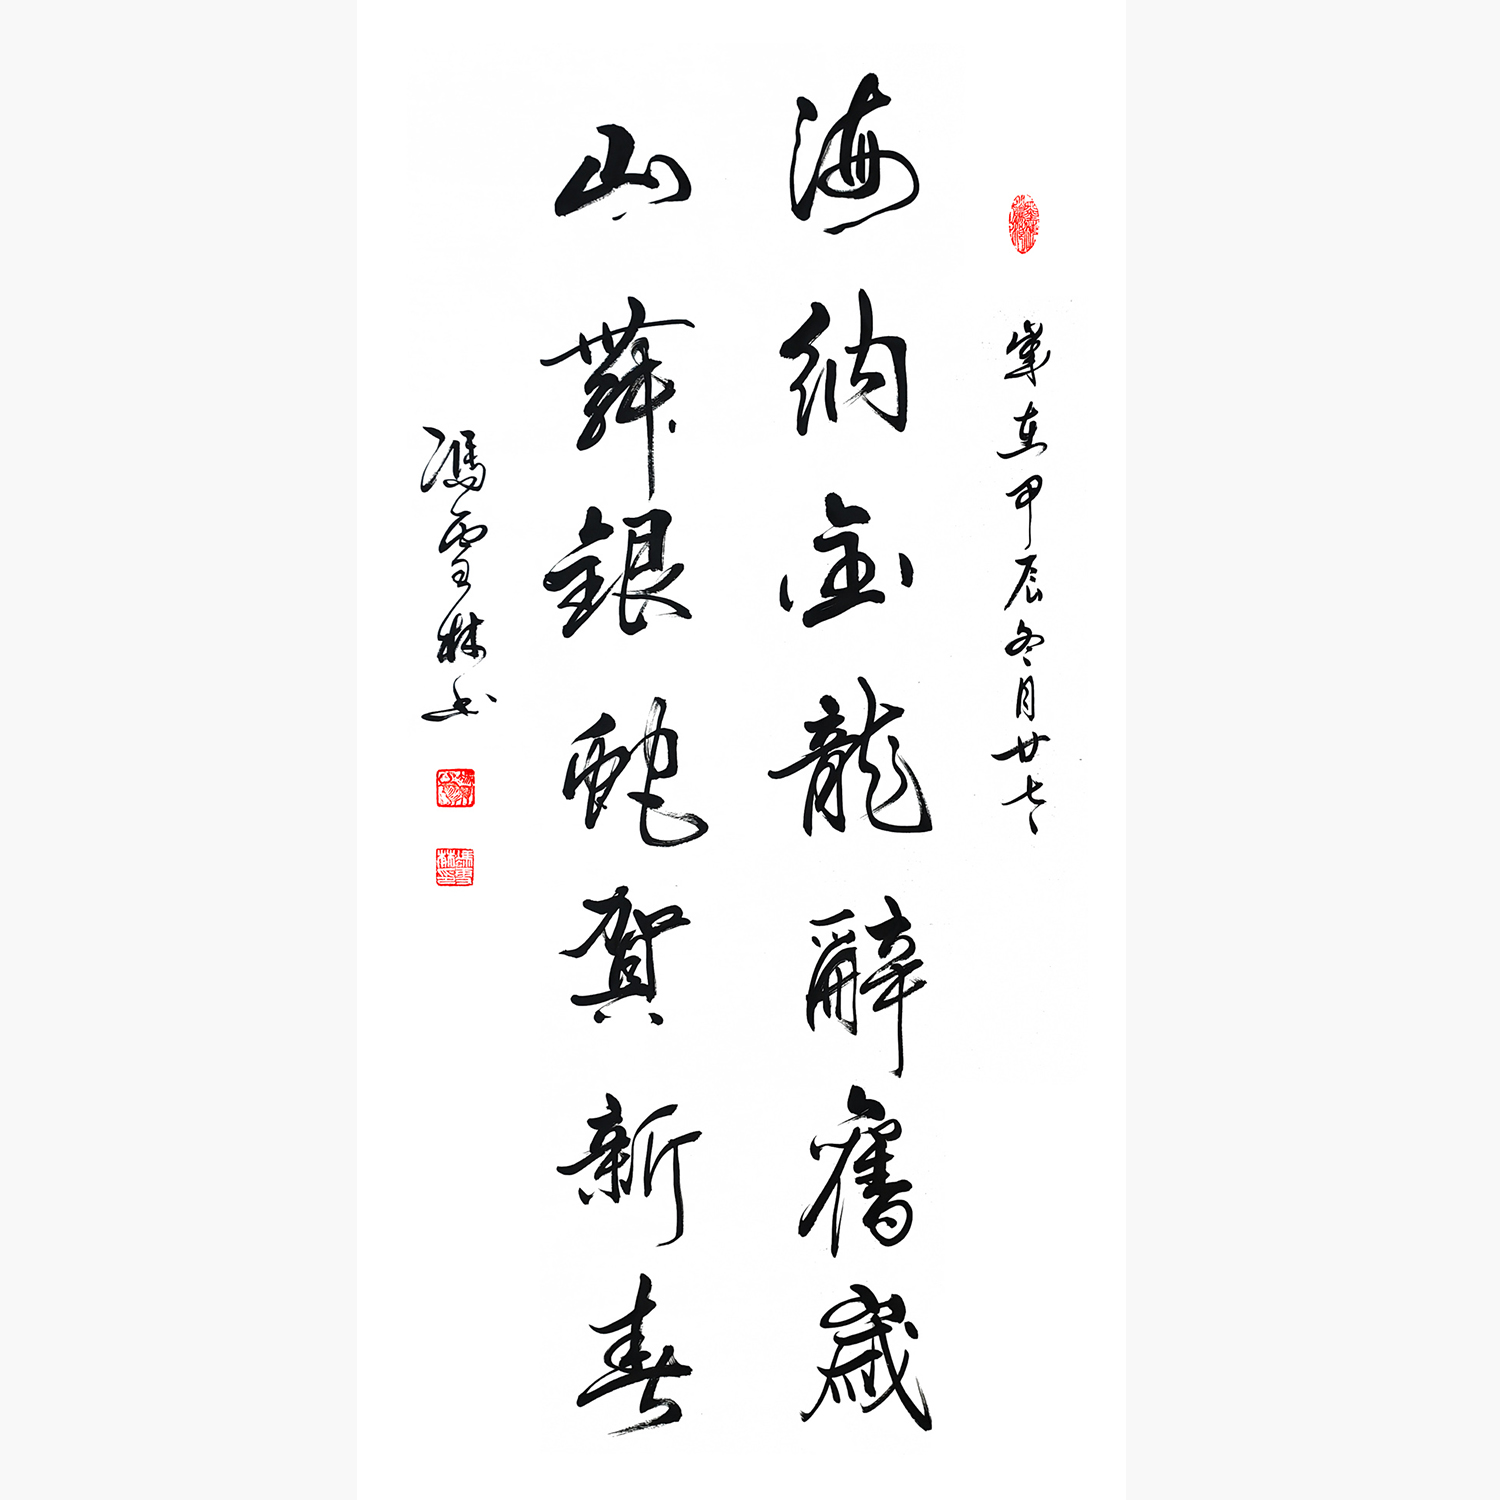 歲在甲辰冬月廿七
海納金龍辭舊歲
山舞銀蛇賀新春
馮雪林书